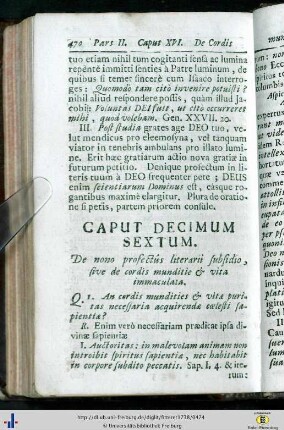 470 Pars II. Caput XVI. De Cordis
tuo etiam nihil tum cogitanti sensa ac lumina
repentè immitti senties à Patre luminum, de
quibus si temet sincerè cum Isaaco interro-
ges: Quomodo tam citò invenire potuisti?
nihil aliud respondere possis, quàm illud Ja-
cobi: Voluntas DEI fuit, ut citò occurreret
mihi, quod volebam. Gen. XXVII. 20.
III. Post studia grates age DEO tuo, ve-
lut mendicus pro eleemosyna, vel tanquam
viator in tenebris ambulans pro illato lumi-
ne. Erit hæc gratiarum actio nova gratiæ in
futurum petitio. Denique profectum in li-
teris tuum à DEO frequenter pete; DEUS
enim scientiarum Dominus est, easque ro-
gantibus maximè elargitur. Plura de oratio-
ne si petis, partem priorem consule.
CAPUT DECIMUM
SEXTUM.
De nono profectûs literarii subsidio,
sive de cordis munditie & vita
immaculata.
Q. 1. An cordis mundities & vitæ puri-
tas necessaria acquirendæ cœlesti sa-
pientiæ?
R. Enim verò necessariam prædicat ipsa di-
vinæ sapientiæ
1. Auctoritas: in malevolam animam non
introibit spiritus sapientiæ, nec habitabit
in corpore subdito peccatis. Sap. I. 4. & ite-
rum:
http://dl.ub.uni-freiburg.de/diglit/
© Universitätsbibliothek Freiburg